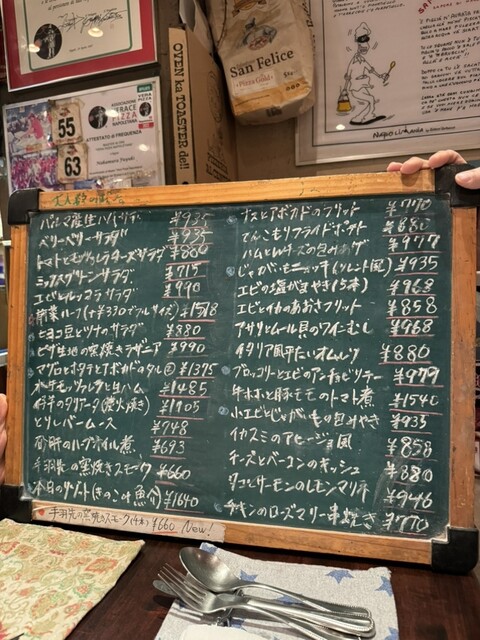 OVEN ka TOASTER de!!
SAN FELICE
Pizza Gold
ASSOCIAZIONE
VERACE
PIZZA
NAPOLETANA
VERA
PIZZA
ATTESTATO di FREQUENZA
55
63
パルマ産生ハム ¥935
ベリーベリーサラダ ¥935
トマトとモッツァレラチーズサラダ ¥880
ミックスグリーンサラダ ¥715
サラダ ¥990
前菜ハーフ ¥1518
ヒヨコ豆とツナのサラダ ¥880
ピザ生地の窯焼きラザニア ¥990
マグロとホタテとアボカドのタルタル ¥1375
水牛モッツァレラと生ハム ¥1485
和牛のタリアータ(炭火焼き) ¥1705
とりレバームース ¥748
砂肝のハーブオイル煮 ¥693
手羽先の窯焼きスモーク ¥660
本日のリゾット(きのこ or 魚介) ¥1640
ナスとアボカドのフリット ¥770
てんこもりフライドポテト ¥680
ハムとチーズの包みあげ ¥977
じゃがいもニョッキ(ソレント風) ¥935
エビの塩がまやき(5本) ¥968
エビとイカのあおさフリット ¥858
アサリとムール貝のワインむし ¥968
イタリア風平たいオムレツ ¥880
ブロッコリーとエビのアンチョビソテー ¥979
牛ホホと豚モモのトマト煮 ¥1540
小エビとじゃがいもの包みやき ¥935
イカスミのアヒージョ風 ¥858
チーズとベーコンのキッシュ ¥880
タコとサーモンのレモンマリネ ¥946
チキンのローズマリー串焼き ¥770
手羽先の窯焼のスモーク(4本) ¥660 New!